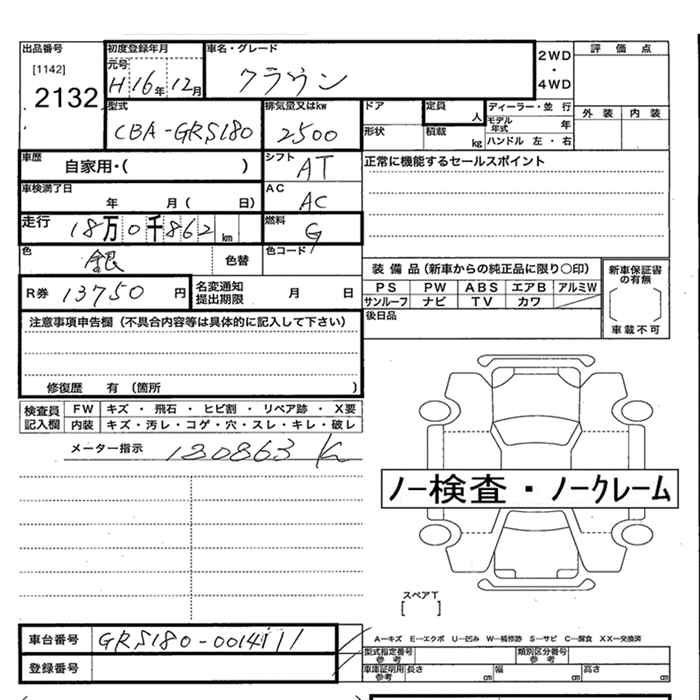 出品番号
[1142]
2132
初度登録年月
元号
H16年12月
車名・グレード
クラウン
2WD
・
4WD
評価点
外装 内装
型式
CBA-GRS180
排気量又はkw
2500
ドア
定員
人
形状
積載
kg
ディーラー・並行
モデル年式 年
ハンドル 左・右
車歴
自家用・( )
シフト
AT
正常に機能するセールスポイント
車検満了日
年 月( 日)
AC
AC
走行
18万0千862km
燃料
G
色
銀
色替
色コード
R券 13750円
名変通知
提出期限
月 日
装備品(新車からの純正品に限り○印)
PS PW ABS エアB アルミW
サンルーフ ナビ TV カワ
後日品
新車保証書
の有無
車載不可
注意事項申告欄(不具合内容等は具体的に記入して下さい)
修復歴 有(箇所 )
検査員
記入欄
FW キズ・飛石・ヒビ割・リペア跡・X要
内装 キズ・汚レ・コゲ・穴・スレ・キレ・破レ
メーター指示 180863 K
ノー検査・ノークレーム
スペアT
[ ]
車台番号 GRS180-0014111
登録番号
A―キズ E―エクボ U―凹み W―補修跡 S―サビ C―腐食 XX―交換済
型式指定番号
参考
類別区分番号
参考
車庫証明用
参考
長さ cm 幅 cm 高さ cm